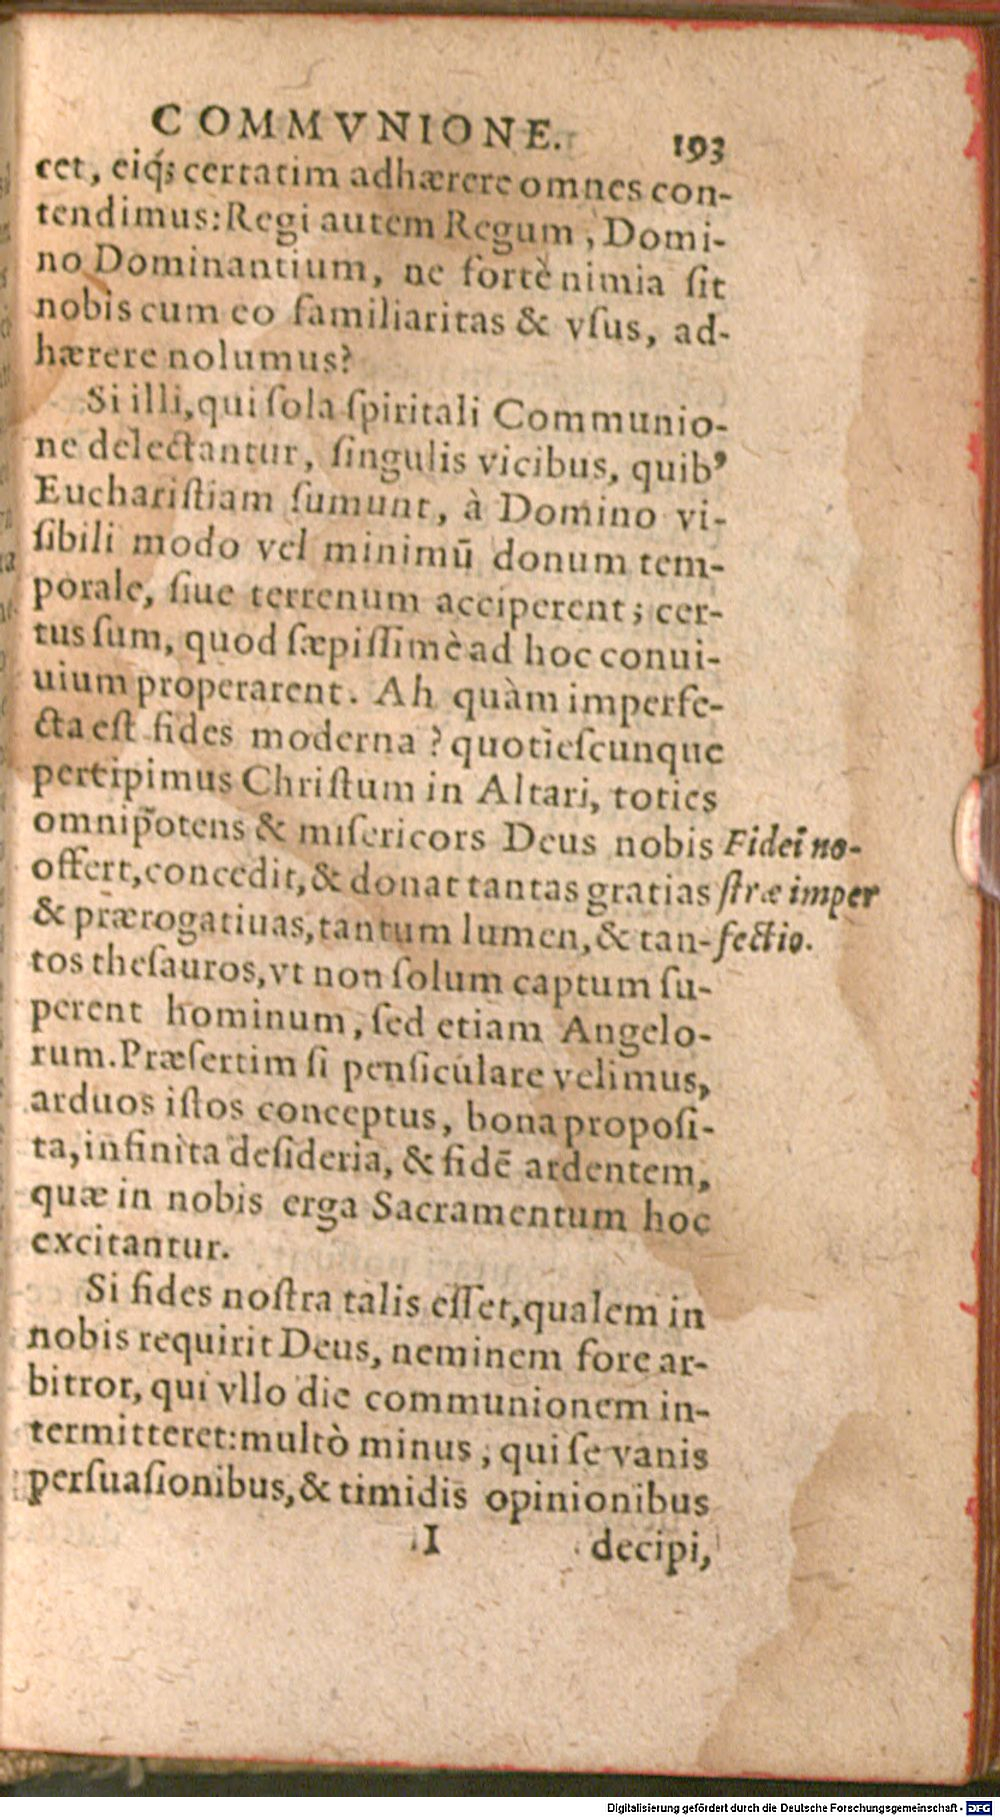 COMMVNIONE. 193
cet, eiq́; certatim adhærere omnes con-
tendimus: Regi autem Regum, Domi-
no Dominantium, ne fortè nimia ſit
nobis cum eo familiaritas & vſus, ad-
hærere nolumus?
Si illi, qui ſola ſpiritali Communio-
ne delectantur, ſingulis vicibus, quib⁹
Euchariſtiam ſumunt, à Domino vi-
ſibili modo vel minimū donum tem-
porale, ſiue terrenum acciperent; cer-
tus ſum, quod ſæpiſſimè ad hoc conui-
uium properarent. Ah quàm imperfe-
cta eſt fides moderna? quotieſcunque
percipimus Chriſtum in Altari, toties
omnip̃otens & miſericors Deus nobis
offert, concedit, & donat tantas gratias
& prærogatiuas, tantum lumen, & tan-
tos theſauros, vt non ſolum captum ſu-
perent hominum, ſed etiam Angelo-
rum. Præſertim ſi penſiculare velimus,
arduos iſtos conceptus, bona propoſi-
ta, infinita deſideria, & fidē ardentem,
quæ in nobis erga Sacramentum hoc
excitantur.
Fidei no-
ſtræ imper
fectio.
Si fides noſtra talis eſſet, qualem in
nobis requirit Deus, neminem fore ar-
bitror, qui vllo die communionem in-
termitteret: multò minus, qui ſe vanis
perſuaſionibus, & timidis opinionibus
I decipi,
Digitalisierung gefördert durch die Deutsche Forschungsgemeinschaft - DFG